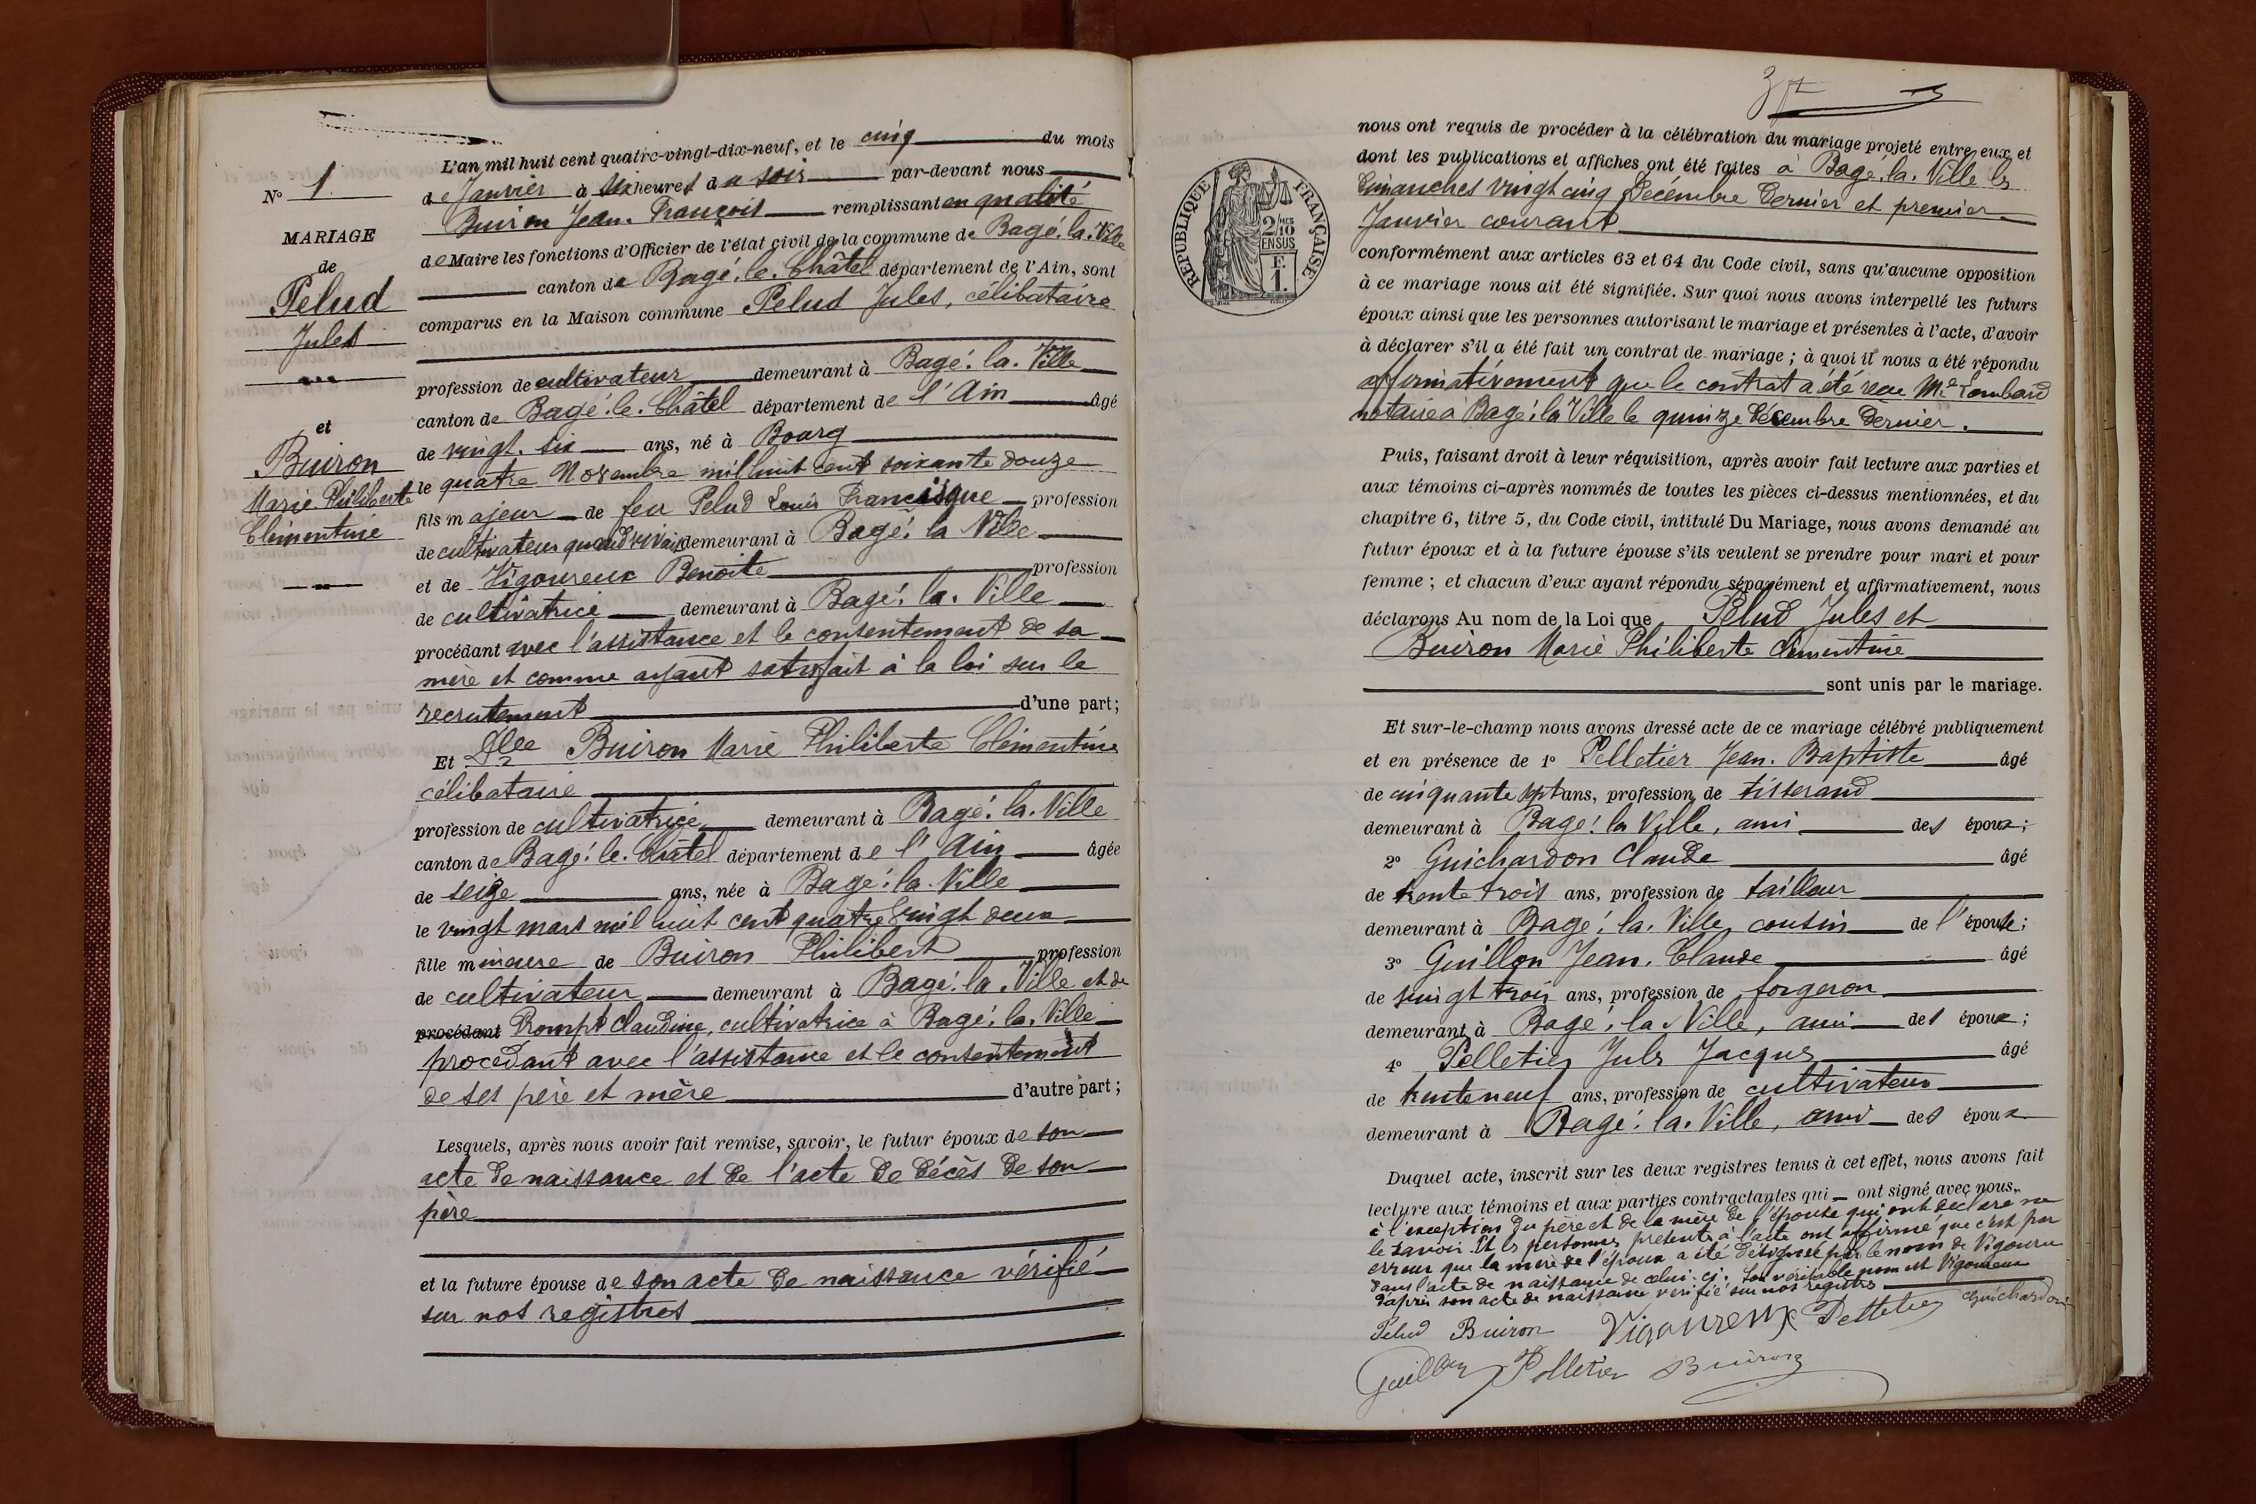 N° 1
MARIAGE
de
Pelud
Jules
et
Buiron
Marie Philiberte
Clémentine
L'an mil huit cent quatre-vingt-dix-neuf, et le cinq du mois
de Janvier à six heures du soir par-devant nous
Buiron Jean-François remplissant en qualité
de Maire les fonctions d'Officier de l'état civil de la commune de Bagé-la-Ville
canton de Bagé-le-Châtel département de l'Ain, sont
comparus en la Maison commune Pelud Jules, célibataire
profession de cultivateur demeurant à Bagé-la-Ville
canton de Bagé-le-Châtel département de l'Ain âgé
de vingt-six ans, né à Bourg
le quatre Novembre mil huit cent soixante douze
fils majeur de feu Pelud Louis Francisque profession
de cultivateur quand vivait demeurant à Bagé-la Ville
et de Vigoureux Benoite profession
de cultivatrice demeurant à Bagé-la-Ville
procédant avec l'assistance et le consentement de sa
mère et comme ayant satisfait à la loi sur le
recrutement d'une part;
Et Dlle Buiron Marie Philiberte Clémentine
célibataire
profession de cultivatrice demeurant à Bagé-la-Ville
canton de Bagé-le-Châtel département de l'Ain âgée
de seize ans, née à Bagé-la-Ville
le vingt mars mil huit cent quatre vingt deux
fille mineure de Buiron Philibert profession
de cultivateur demeurant à Bagé-la-Ville et de
procédant Prompt Claudine, cultivatrice à Bagé-la-Ville
procédant avec l'assistance et le consentement
de ses père et mère d'autre part;
Lesquels, après nous avoir fait remise, savoir, le futur époux de son
acte de naissance et de l'acte de décès de son
père
et la future épouse de son acte de naissance vérifié
sur nos registres
RÉPUBLIQUE FRANÇAISE
2/10
EN SUS
F.
1.
nous ont requis de procéder à la célébration du mariage projeté entre eux et
dont les publications et affiches ont été faites à Bagé-la-Ville les
dimanches vingt cinq Décembre dernier et premier
Janvier courant
conformément aux articles 63 et 64 du Code civil, sans qu'aucune opposition
à ce mariage nous ait été signifiée. Sur quoi nous avons interpellé les futurs
époux ainsi que les personnes autorisant le mariage et présentes à l'acte, d'avoir
à déclarer s'il a été fait un contrat de mariage; à quoi il nous a été répondu
affirmativement que le contrat a été reçu Me Lombard
notaire à Bagé-la Ville le quinze décembre dernier.
Puis, faisant droit à leur réquisition, après avoir fait lecture aux parties et
aux témoins ci-après nommés de toutes les pièces ci-dessus mentionnées, et du
chapitre 6, titre 5, du Code civil, intitulé Du Mariage, nous avons demandé au
futur époux et à la future épouse s'ils veulent se prendre pour mari et pour
femme; et chacun d'eux ayant répondu séparément et affirmativement, nous
déclarons Au nom de la Loi que Pelud Jules et
Buiron Marie Philiberte Clémentine
sont unis par le mariage.
Et sur-le-champ nous avons dressé acte de ce mariage célébré publiquement
et en présence de 1° Pelletier Jean-Baptiste âgé
de cinquante sept ans, profession de tisserand
demeurant à Bagé-la Ville, ami des époux;
2° Guichardon Claude âgé
de trente trois ans, profession de tailleur
demeurant à Bagé-la-Ville cousin de l'épouse;
3° Guillon Jean-Claude âgé
de vingt trois ans, profession de forgeron
demeurant à Bagé-la-Ville, ami des époux;
4° Pelletier Jules Jacques âgé
de trente neuf ans, profession de cultivateur
demeurant à Bagé-la-Ville, ami des époux
Duquel acte, inscrit sur les deux registres tenus à cet effet, nous avons fait
lecture aux témoins et aux parties contractantes qui ont signé avec nous
à l'exception du père et de la mère de l'épouse qui ont déclaré ne
le savoir. Et les personnes présentes à l'acte ont affirmé que c'est par
erreur que la mère de l'époux a été désignée par le nom de Vigouru
dans l'acte de naissance de celui-ci. Son véritable nom est Vigoureux
d'après son acte de naissance vérifié sur nos registres
Pelud Buiron Vigoureux Pelletier Guichardon
Guillon Pelletier Buiron